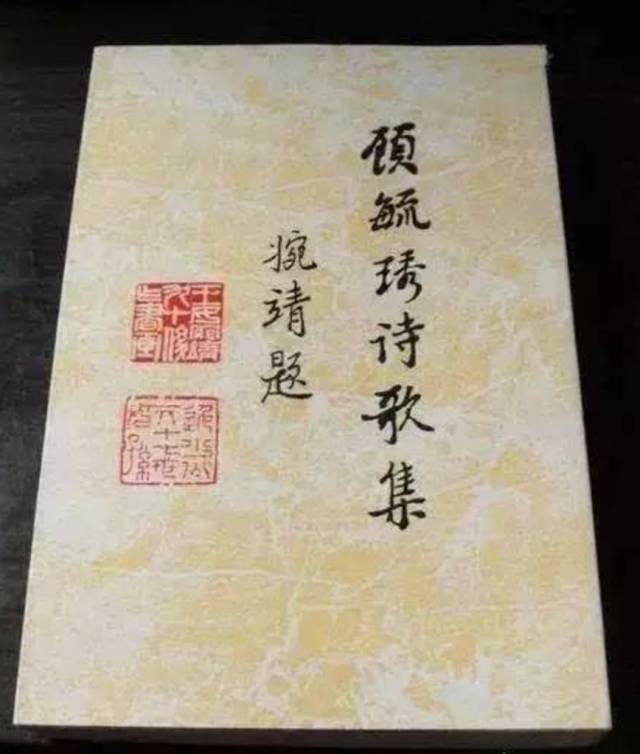 顾毓琇诗歌集
婉靖题